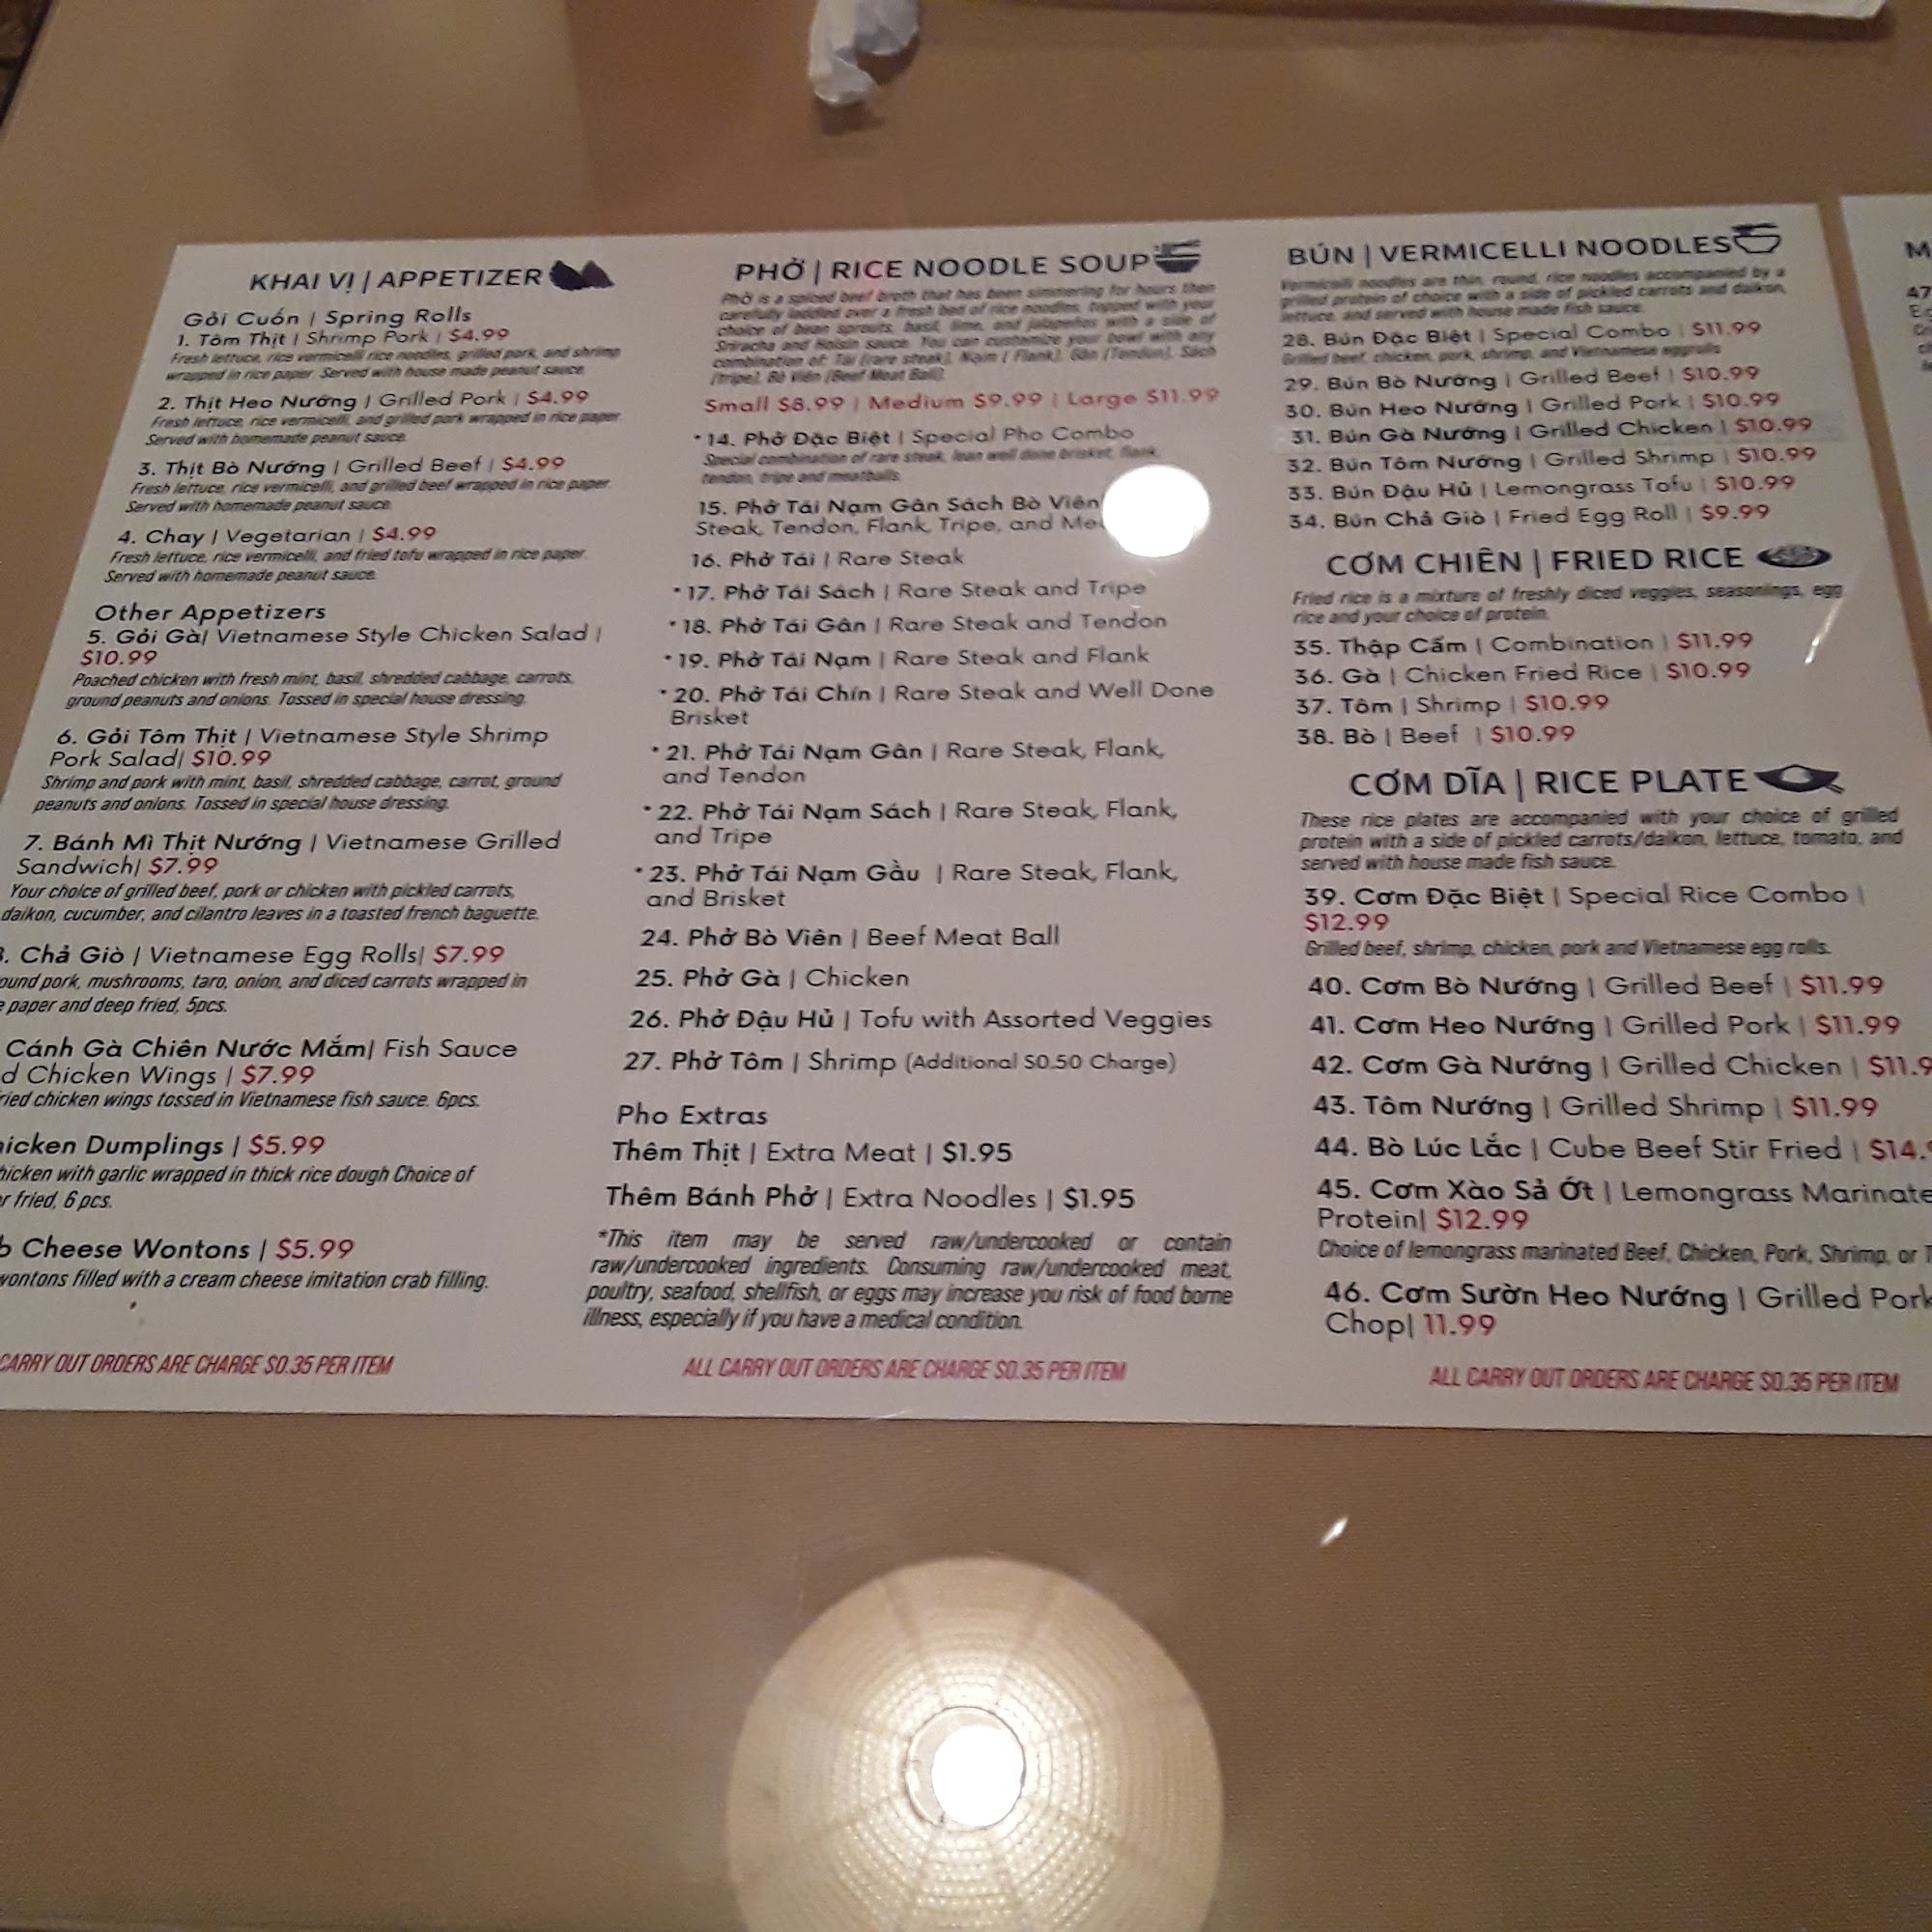 KHAI VỊ | APPETIZER
Gỏi Cuốn | Spring Rolls
1. Tôm Thịt | Shrimp Pork | $4.99
Fresh lettuce, rice vermicelli rice noodles, grilled pork, and shrimp
wrapped in rice paper. Served with house made peanut sauce.
2. Thịt Heo Nướng | Grilled Pork | $4.99
Fresh lettuce, rice vermicelli, and grilled pork wrapped in rice paper.
Served with homemade peanut sauce.
3. Thịt Bò Nướng | Grilled Beef | $4.99
Fresh lettuce, rice vermicelli, and grilled beef wrapped in rice paper.
Served with homemade peanut sauce.
4. Chay | Vegetarian | $4.99
Fresh lettuce, rice vermicelli, and fried tofu wrapped in rice paper.
Served with homemade peanut sauce.
Other Appetizers
5. Gỏi Gà| Vietnamese Style Chicken Salad |
$10.99
Poached chicken with fresh mint, basil, shredded cabbage, carrots,
ground peanuts and onions. Tossed in special house dressing.
6. Gỏi Tôm Thịt | Vietnamese Style Shrimp
Pork Salad| $10.99
Shrimp and pork with mint, basil, shredded cabbage, carrot, ground
peanuts and onions. Tossed in special house dressing.
7. Bánh Mì Thịt Nướng | Vietnamese Grilled
Sandwich| $7.99
Your choice of grilled beef, pork or chicken with pickled carrots,
daikon, cucumber, and cilantro leaves in a toasted french baguette.
Chả Giò | Vietnamese Egg Rolls| $7.99
pork, mushrooms, taro, onion, and diced carrots wrapped in
paper and deep fried, 5pcs.
Cánh Gà Chiên Nước Mắm| Fish Sauce
Chicken Wings | $7.99
chicken wings tossed in Vietnamese fish sauce. 6pcs.
Dumplings | $5.99
with garlic wrapped in thick rice dough Choice of
fried, 6 pcs.
Cheese Wontons | $5.99
wontons filled with a cream cheese imitation crab filling.
CARRY OUT ORDERS ARE CHARGE $0.35 PER ITEM
PHỞ | RICE NOODLE SOUP
Phở is a spiced beef broth that has been simmering for hours then
carefully laddled over a fresh bed of rice noodles, topped with your
choice of bean sprouts, basil, lime, and jalapeños with a side of
Sriracha and Hoisin sauce. You can customize your bowl with any
combination of: Tái (rare steak), Nạm ( Flank), Gân (Tendon), Sách
(tripe), Bò Viên (Beef Meat Ball).
Small $8.99 | Medium $9.99 | Large $11.99
*14. Phở Đặc Biệt | Special Pho Combo
Special combination of rare steak, lean well done brisket, flank,
tendon, tripe and meatballs.
15. Phở Tái Nạm Gân Sách Bò Viên
Steak, Tendon, Flank, Tripe, and
16. Phở Tái | Rare Steak
*17. Phở Tái Sách | Rare Steak and Tripe
*18. Phở Tái Gân | Rare Steak and Tendon
*19. Phở Tái Nạm | Rare Steak and Flank
*20. Phở Tái Chín | Rare Steak and Well Done
Brisket
*21. Phở Tái Nạm Gân | Rare Steak, Flank,
and Tendon
*22. Phở Tái Nạm Sách | Rare Steak, Flank,
and Tripe
*23. Phở Tái Nạm Gầu | Rare Steak, Flank,
and Brisket
24. Phở Bò Viên | Beef Meat Ball
25. Phở Gà | Chicken
26. Phở Đậu Hủ | Tofu with Assorted Veggies
27. Phở Tôm | Shrimp (Additional $0.50 Charge)
Pho Extras
Thêm Thịt | Extra Meat | $1.95
Thêm Bánh Phở | Extra Noodles | $1.95
*This item may be served raw/undercooked or contain
raw/undercooked ingredients. Consuming raw/undercooked meat,
poultry, seafood, shellfish, or eggs may increase you risk of food borne
illness, especially if you have a medical condition.
ALL CARRY OUT ORDERS ARE CHARGE $0.35 PER ITEM
BÚN | VERMICELLI NOODLES
Vermicelli noodles are thin, round, rice noodles accompanied by a
grilled protein of choice with a side of pickled carrots and daikon,
lettuce, and served with house made fish sauce.
28. Bún Đặc Biệt | Special Combo | $11.99
Grilled beef, chicken, pork, shrimp, and Vietnamese eggrolls
29. Bún Bò Nướng | Grilled Beef | $10.99
30. Bún Heo Nướng | Grilled Pork | $10.99
31. Bún Gà Nướng | Grilled Chicken | $10.99
32. Bún Tôm Nướng | Grilled Shrimp | $10.99
33. Bún Đậu Hủ | Lemongrass Tofu | $10.99
34. Bún Chả Giò | Fried Egg Roll | $9.99
CƠM CHIÊN | FRIED RICE
Fried rice is a mixture of freshly diced veggies, seasonings, egg
rice and your choice of protein.
35. Thập Cẩm | Combination | $11.99
36. Gà | Chicken Fried Rice | $10.99
37. Tôm | Shrimp | $10.99
38. Bò | Beef | $10.99
CƠM DĨA | RICE PLATE
These rice plates are accompanied with your choice of grilled
protein with a side of pickled carrots/daikon, lettuce, tomato, and
served with house made fish sauce.
39. Cơm Đặc Biệt | Special Rice Combo |
$12.99
Grilled beef, shrimp, chicken, pork and Vietnamese egg rolls.
40. Cơm Bò Nướng | Grilled Beef | $11.99
41. Cơm Heo Nướng | Grilled Pork | $11.99
42. Cơm Gà Nướng | Grilled Chicken | $11.9
43. Tôm Nướng | Grilled Shrimp | $11.99
44. Bò Lúc Lắc | Cube Beef Stir Fried | $14.
45. Cơm Xào Sả Ớt | Lemongrass Marinate
Protein| $12.99
Choice of lemongrass marinated Beef, Chicken, Pork, Shrimp, or
46. Cơm Sườn Heo Nướng | Grilled Pork
Chop| 11.99
ALL CARRY OUT ORDERS ARE CHARGE $0.35 PER ITEM
47